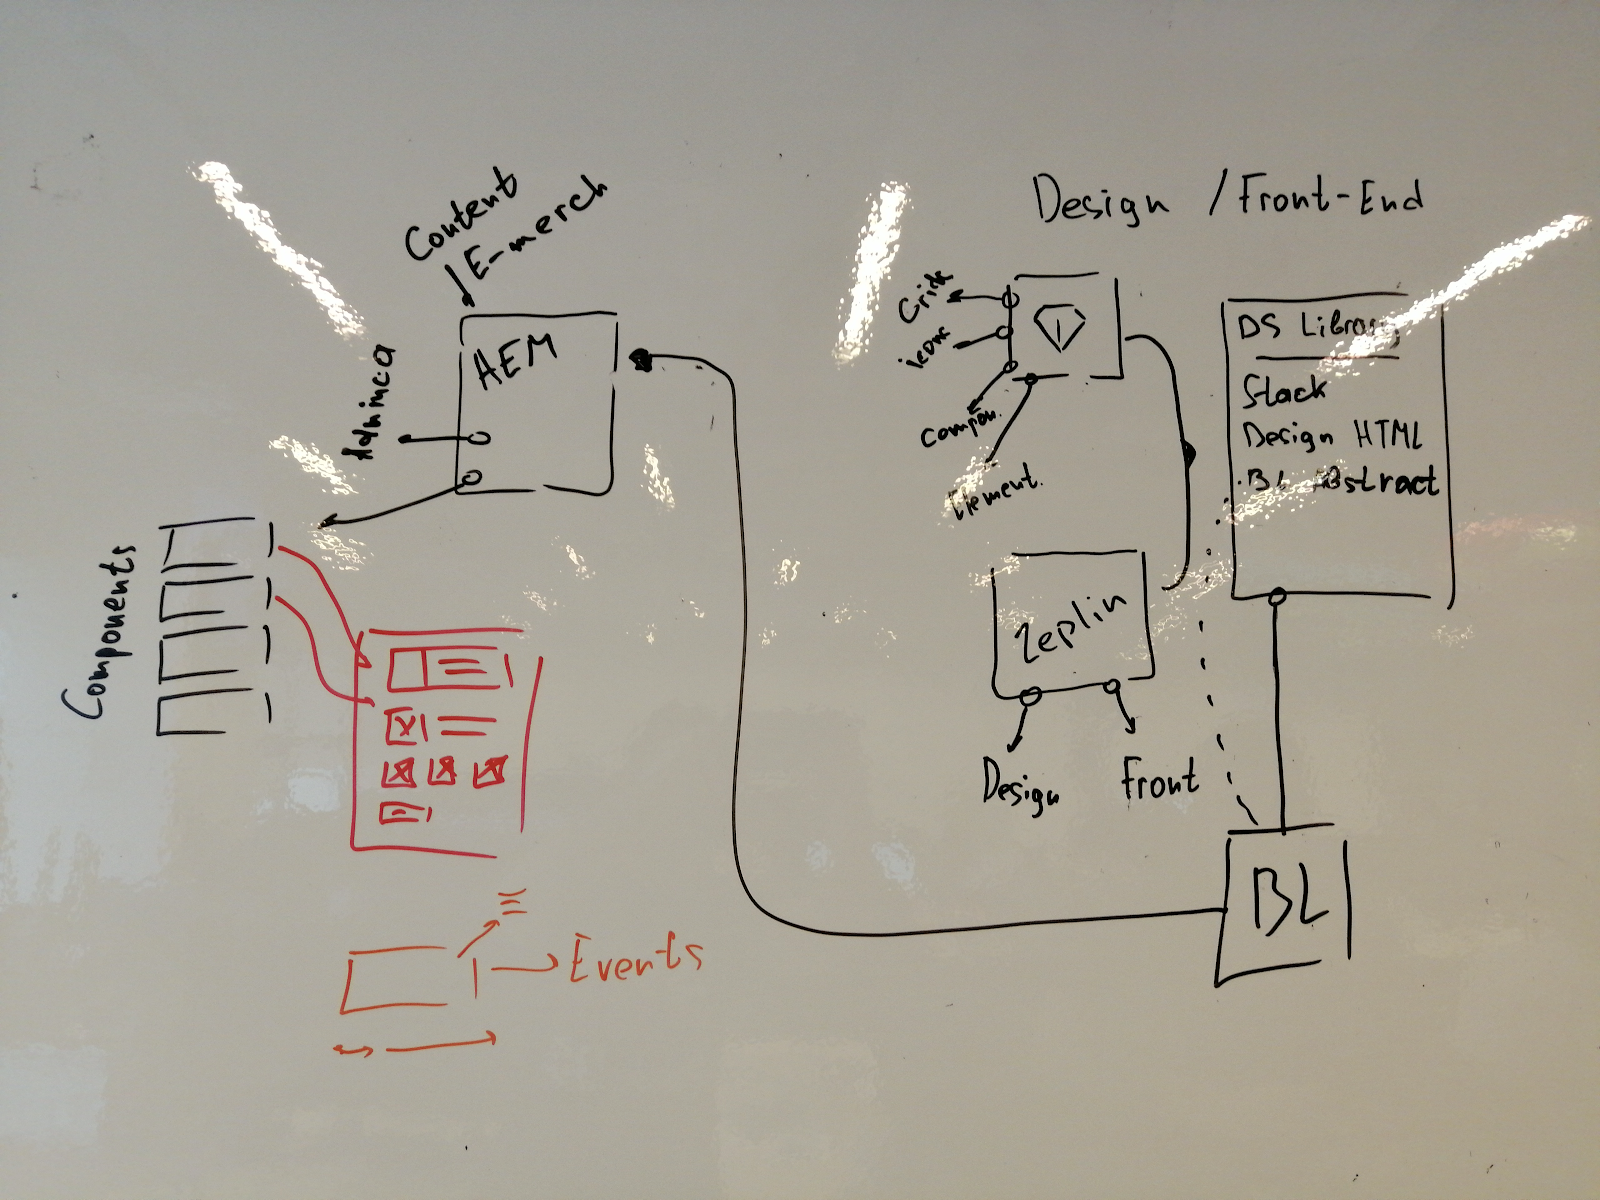 Content
E-merch
AEM
Components
Events
Design / Front-End
Grids
icons
Compon.
Element.
Zeplin
Design
Front
DS Library
Stack
Design HTML
BL Abstract
BL